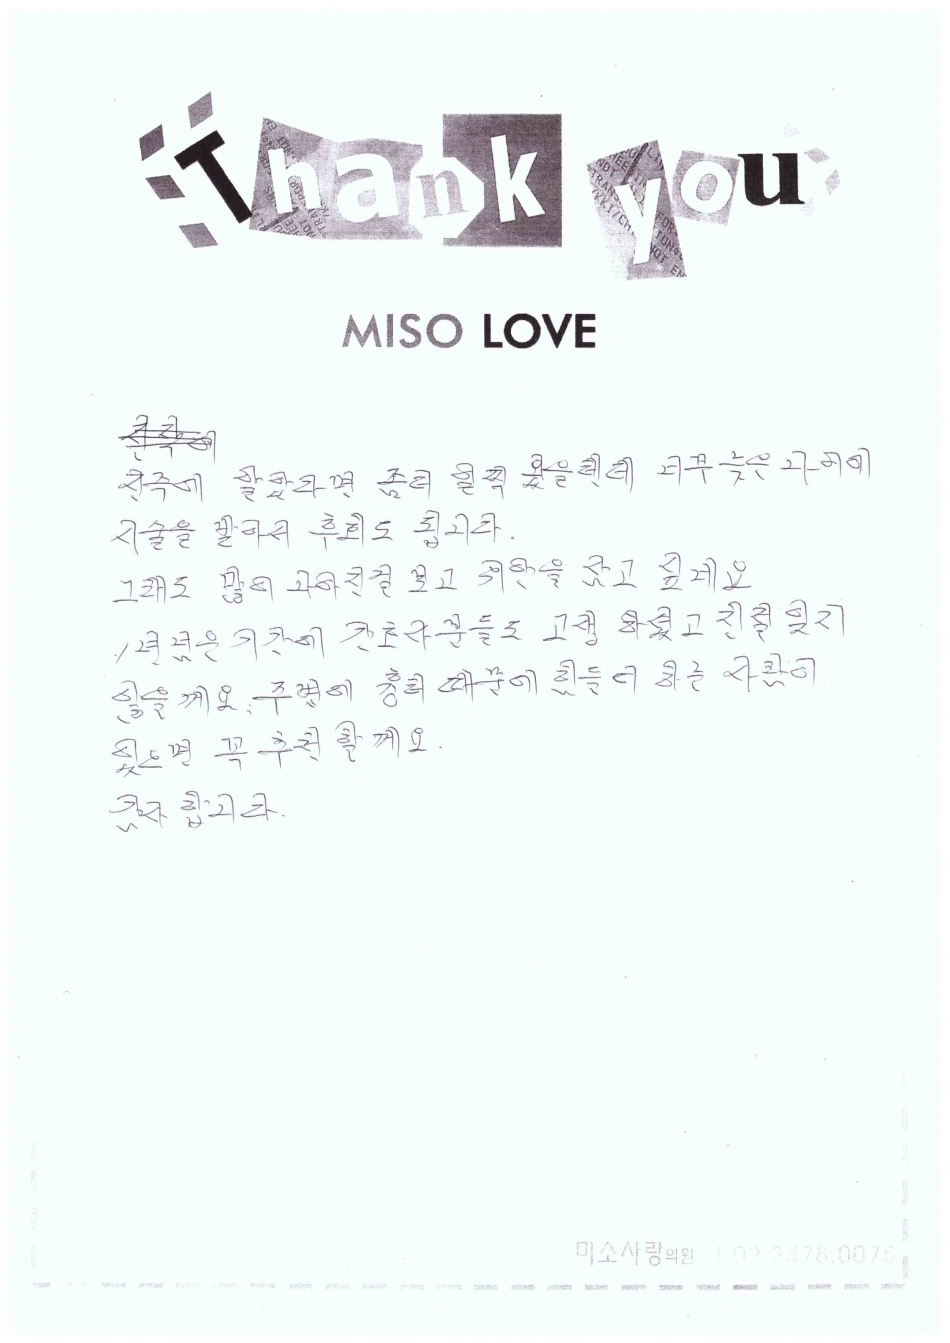 Thank you
MISO LOVE
진작에 알았다면 좀더 일찍 왔을텐데 너무 늦은 나이에
시술을 받아서 후회도 됩니다.
그래도 많이 나아진걸 보고 위안을 삼고 싶네요
1년넘은 기간에 간호사분들도 고생 하셨고 친절 잊지
않을께요. 주변에 흉터 때문에 힘들어 하는 사람이
있으면 꼭 추천 할께요.
감사 합니다.
미소사랑의원 T 02.3478.0075